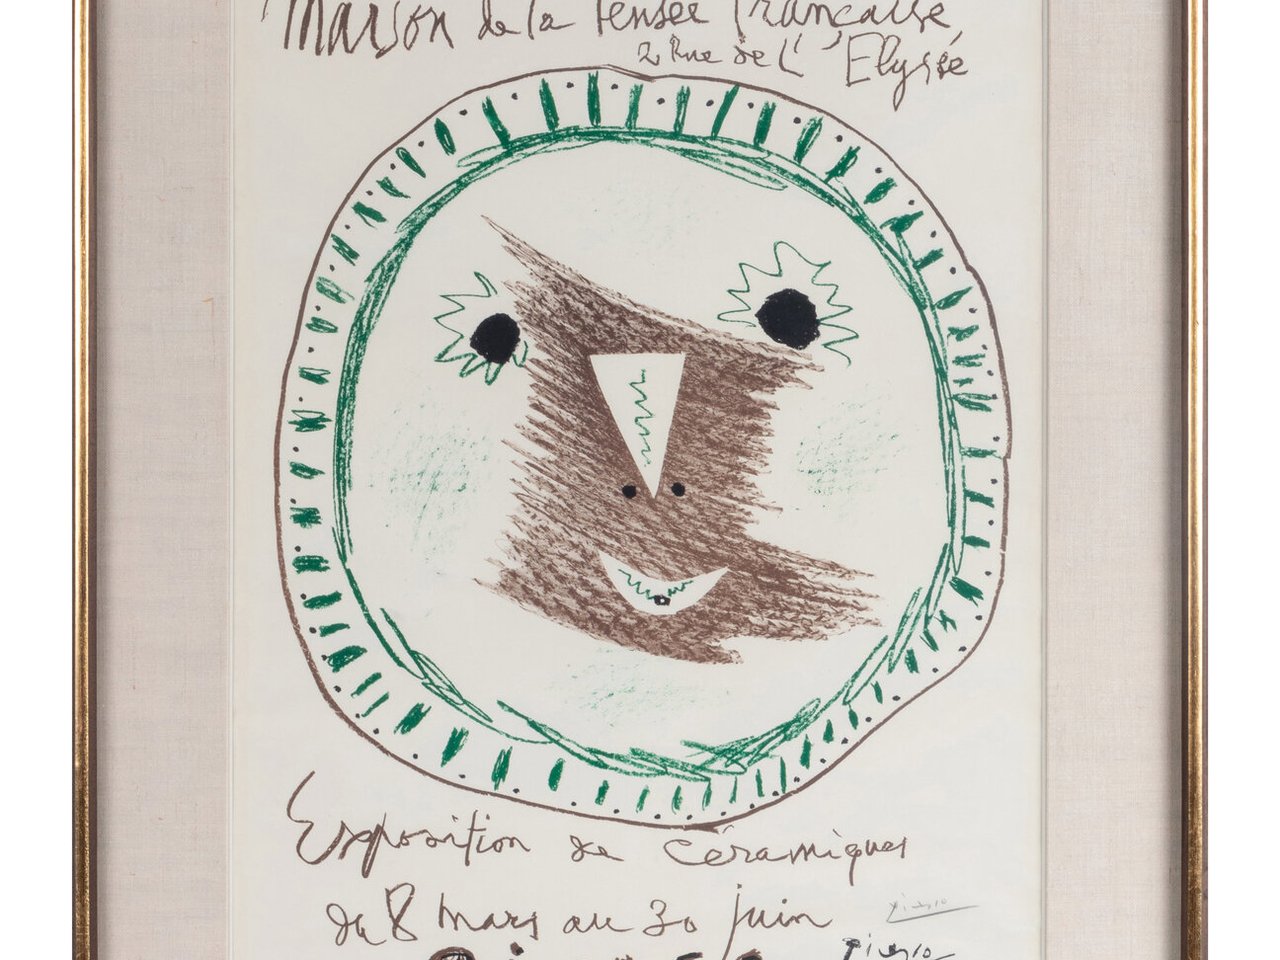 Maison de la Pensée Française
2 Rue de L'Elysée
Exposition de céramiques
du 8 mars au 30 juin
Picasso
Picasso